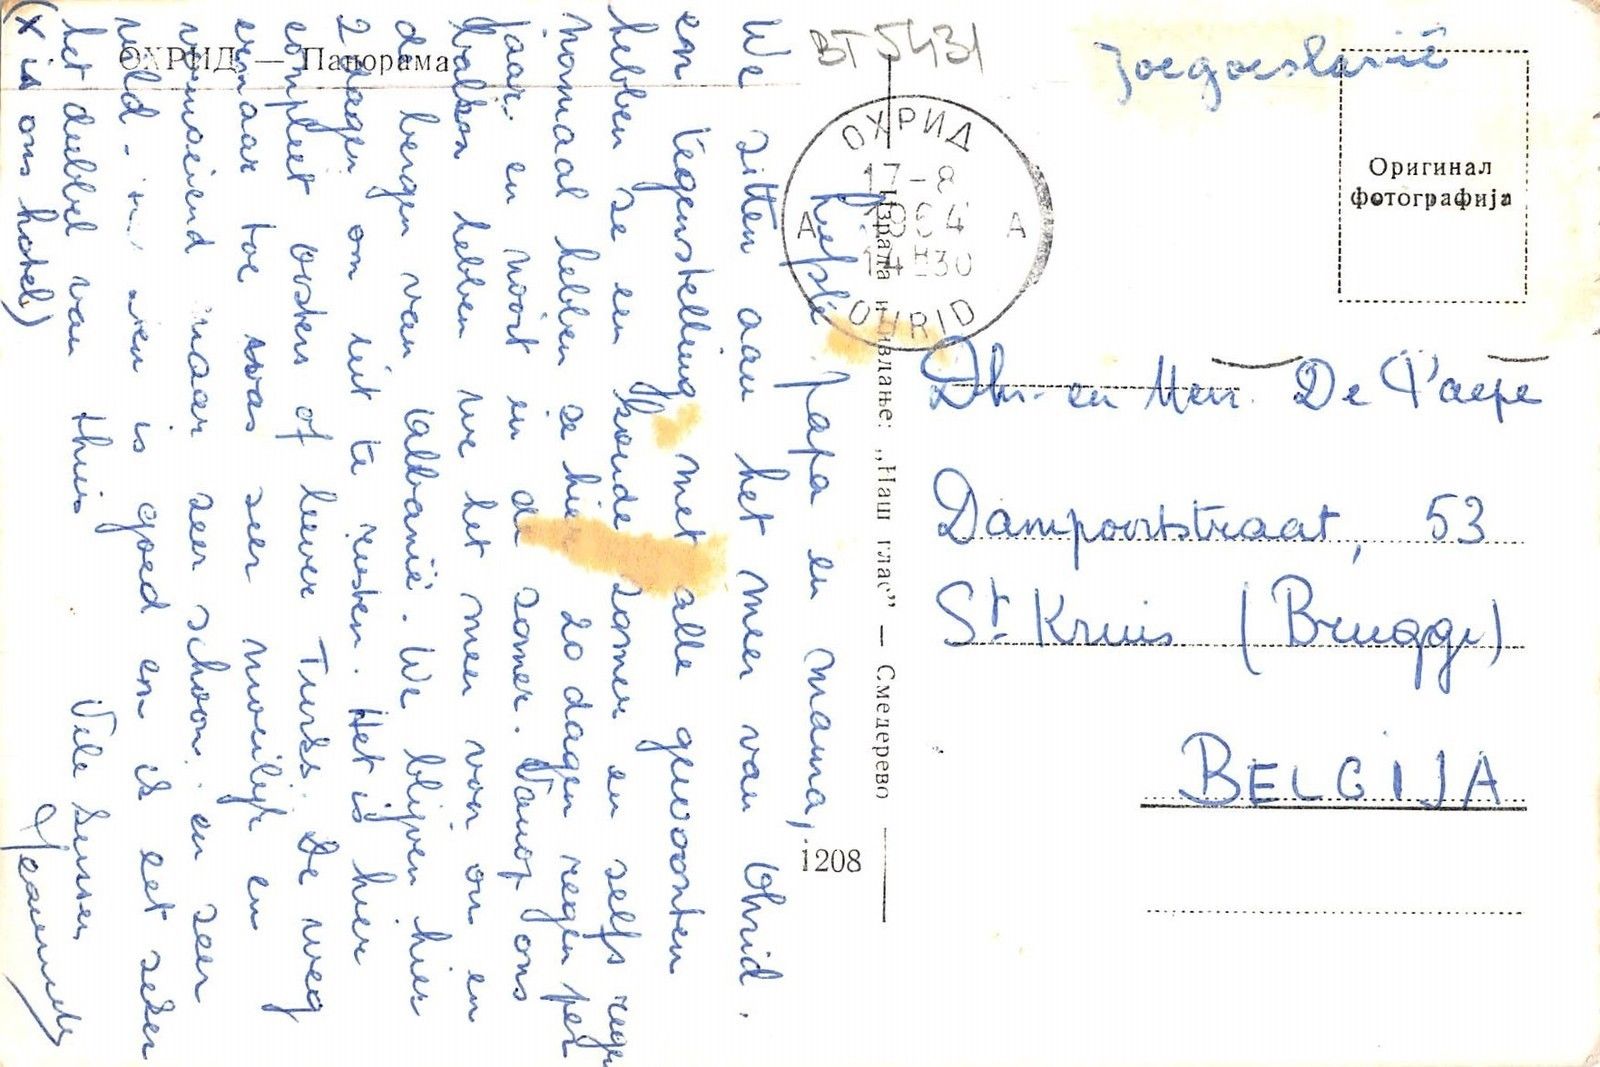 ОХРИД — Панорама
BT 5431
Joegoeslavië
ОХРИД
17-8
1964
14H30
A A
OHRID
Оригинал
фотографија
Израда и издање: „Наш глас” — Смедерево
1208
Dhr. en Mevr. De Paepe
Dampoortstraat, 53
St Kruis (Brugge)
BELGIJA
Liefste papa en mama,
We zitten aan het meer van Ohrid.
en tegenstelling met alle gewoonten
hebben ze een koude zomer en zelfs regen
normaal hebben ze hier 20 dagen regen per
jaar. en nooit in de zomer. Vanop ons
balkon hebben we het meer voor ons en
de bergen van Albanië. We blijven hier
2 dagen om uit te rusten. Het is hier
compleet oosters of liever Turks. De weg
ernaar toe was zeer moeilijk en
vermoeiend maar zeer schoon. en zeer
wild. is goed en ik eet zeker
het dubbel van thuis
Vele kussen
(x is ons hotel)